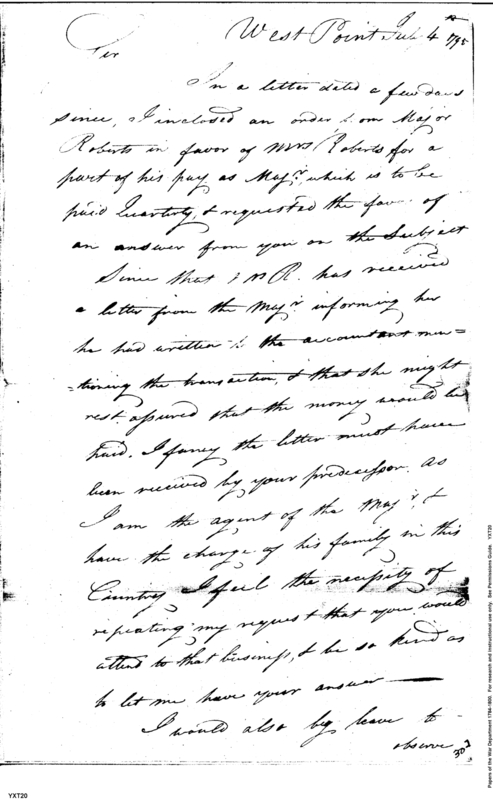 West Point July 4th 1795
Sir
In a letter dated a few days
since, I inclosed an order from Major
Roberts in favor of Mrs Roberts for a
part of his pay as Majr. which is to be
paid Quarterly, & requested the favr of
an answer from you on the Subject
Since that Mrs R. has received
a letter from the Majr. informing her
he had written to the accountant men=
=tioning the transaction, & that she might
rest assured that the money would be
paid. I fancy the letter must have
been received by your predecessor. As
I am the agent of the Majr. &
have the charge of his family in this
Country I feel the necessity of
repeating my request that you would
attend to that business, & be so kind as
to let me have your answer —
I would also beg leave to
observe
YXT20
Papers of the War Department 1784-1800. For research and instructional use only. See Permissions Guide. YXT20